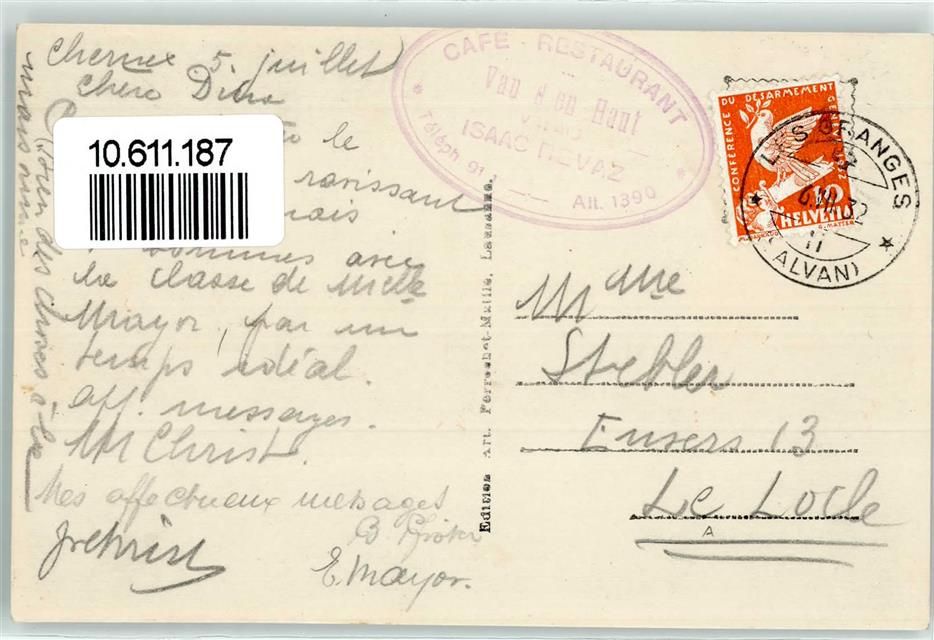 5. juillet
10.611.187
le
ravissant
mais
sommes avec
la classe de Melle
Mayor, par un
temps idéal.
aff. messages.
M Christ.
Mes affectueux messages
E. Mayor.
CAFÉ - RESTAURANT
Van d'en Haut
ISAAC REVAZ
Téléph. 91
Alt. 1390
Edition Art. Perrochet-Matile, Lausanne.
CONFÉRENCE DU DÉSARMEMENT
10
HELVETIA
LES GRANGES
(SALVAN)
Mme
Stebler
Envers 13
Le Locle
A